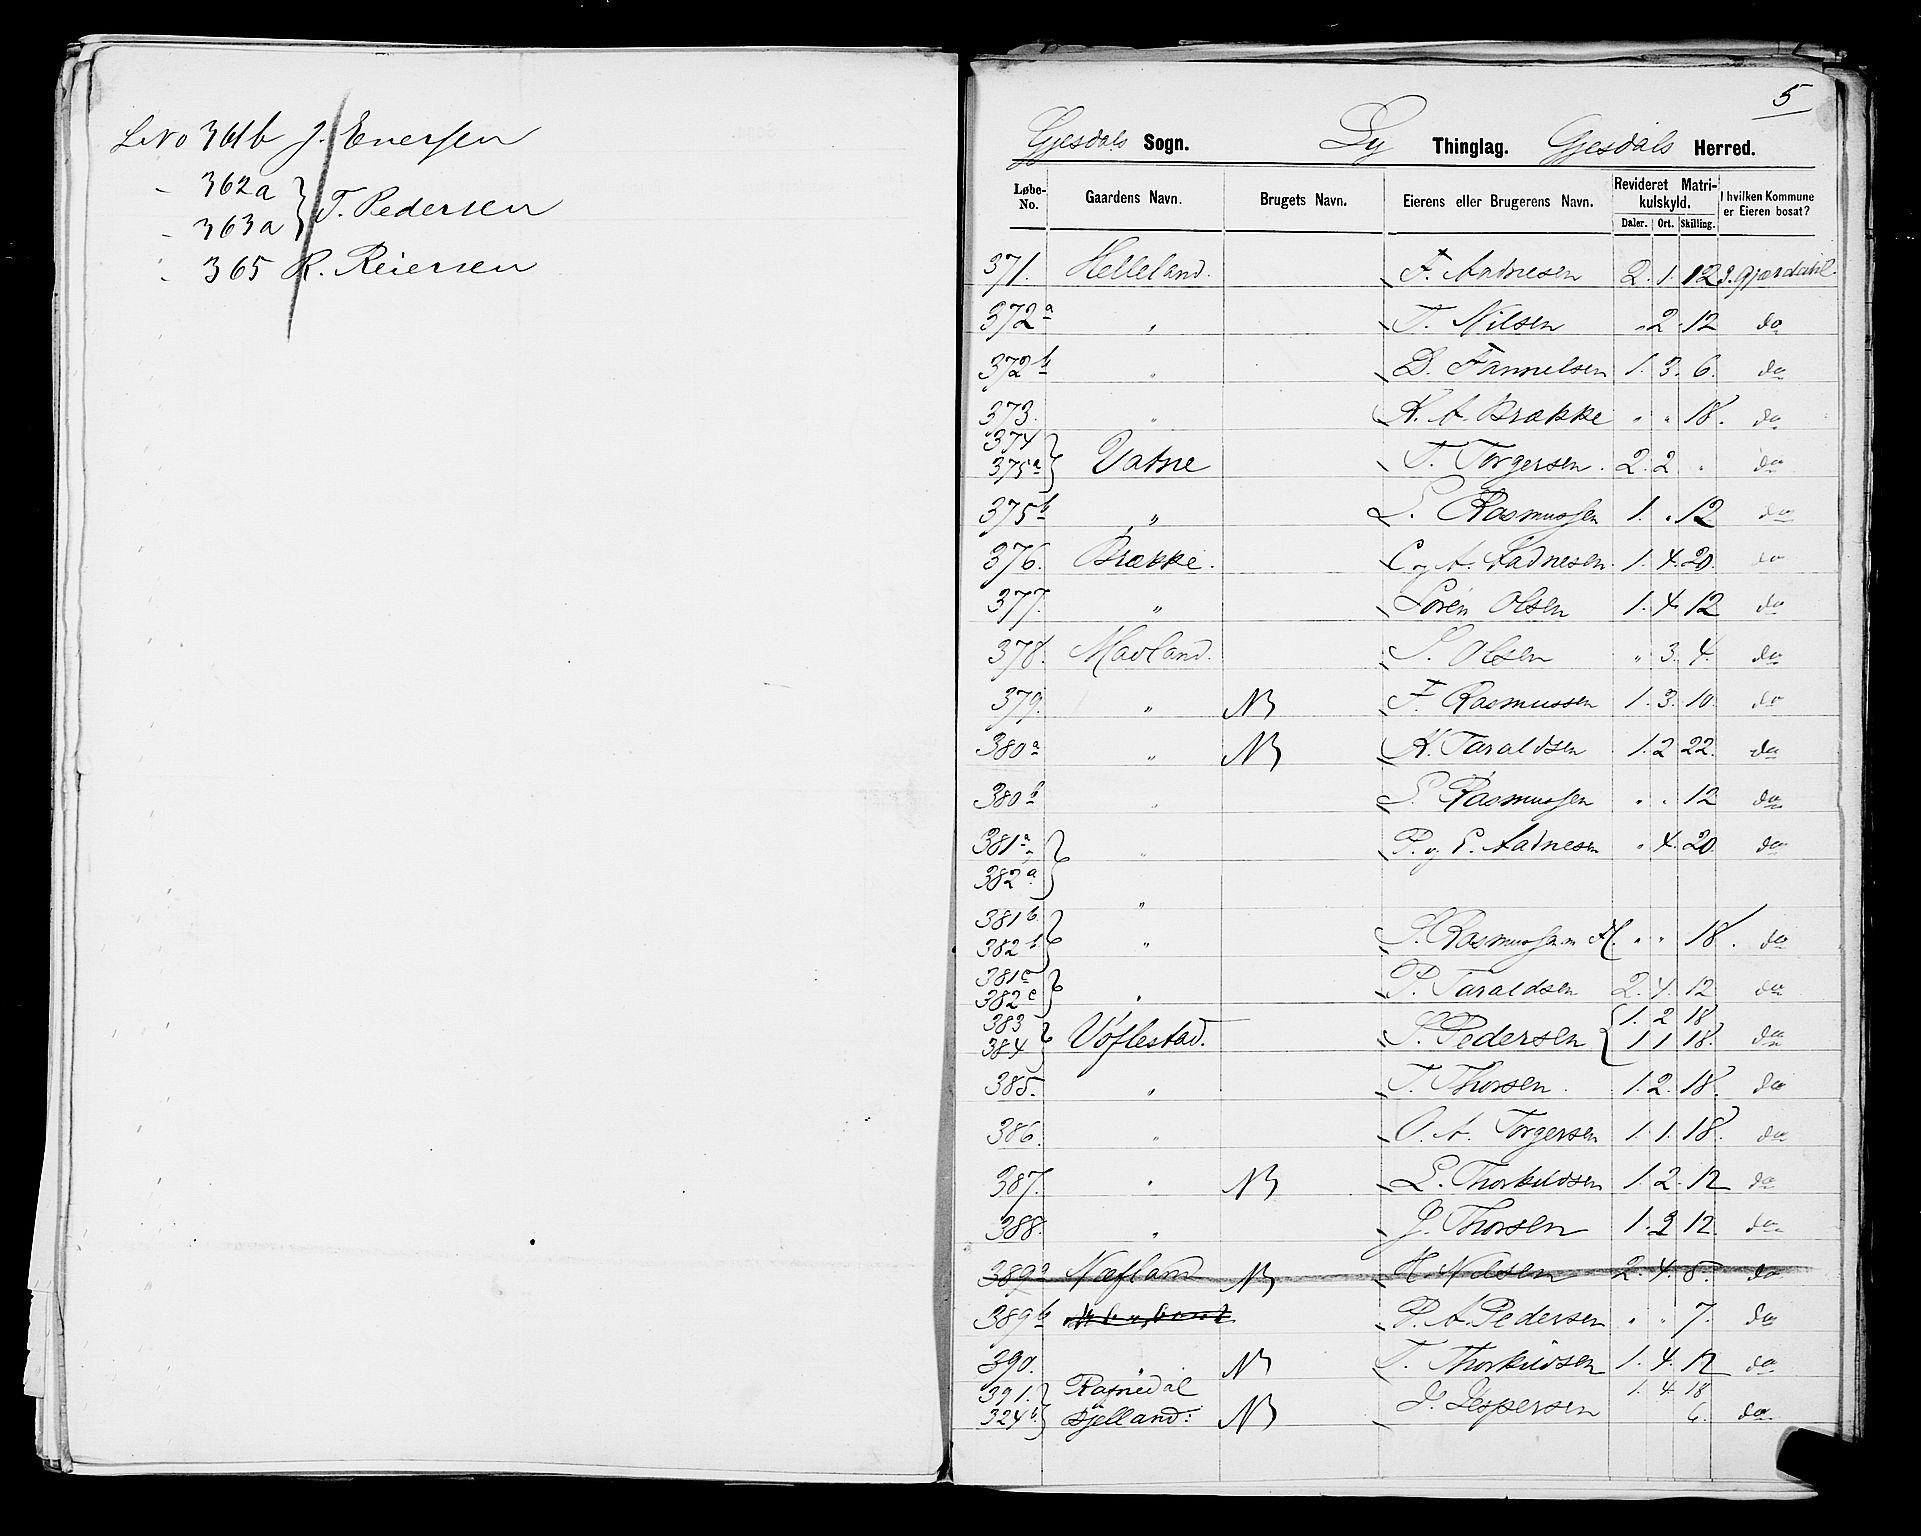 LNo 361b J. Eversen
- 362a } T. Pedersen
- 363a
- 365 R. Reiersen
5
Gjesdals Sogn. Ly Thinglag. Gjesdals Herred.
Løbe-No. Gaardens Navn. Brugets Navn. Eierens eller Brugerens Navn. Revideret Matrikulskyld. I hvilken Kommune er Eieren bosat?
Daler. Ort. Skilling.
371. Helleland. F. Aadnesen 2. 1. 12 Gjæsdahl.
372a " T. Nilsen " 2 12 do
372b " D. 1. 3. 6. do
373. " K. A. Brække " " 18. do
374
375a } Vatne T. Torgersen. 2. 2 " do
375b " S. Rasmussen 1. " 12 do
376. Brække. C og A. Aadnesen. 1. 4. 20. do
377. " Sören Olsen 1. 4. 12 do
378. Mavland. S. Olsen " 3. 4. do
379. " NB F. Rasmussen 1. 3. 10. do
380a " NB K. Taraldsen 1. 2 22. do
380b " S. Rasmussen " " 12 do
381a } " P. og E. Aadnesen " 4. 20. do
382a "
381b
382b } " S. Rasmussen " " 18. do
381c
382c } " P. Taraldsen 2. 4. 12 do
383 1. 2 18
384 } Vöflestad. S. Pedersen 1 1 18. do
385. " T. Thorsen. 1. 2. 18. do
386. " O. A. Torgersen 1. 1. 18. do
387. " NB L. Thorkildsen 1. 2. 12 do
388. " J. Thorsen 1. 2 12. do
389a Næfland NB H. Nilsen 2. 4. 8. do
389b P. A. Pedersen " " 7. do
390. NB T. Thorkildsen 1. 4. 12 do
391. Ravnedal 1. 4 18
324b } Bjelland: NB J. Jespersen 6. do.